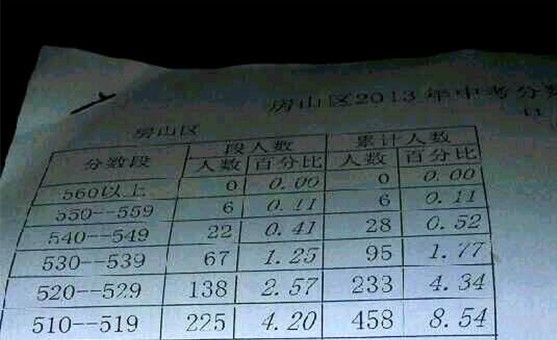 房山区2013年中考分
房山区
分数段 段人数 累计人数
人数 百分比 人数 百分比
560以上 0 0.00 0 0.00
550--559 6 0.11 6 0.11
540--549 22 0.41 28 0.52
530--539 67 1.25 95 1.77
520--529 138 2.57 233 4.34
510--519 225 4.20 458 8.54